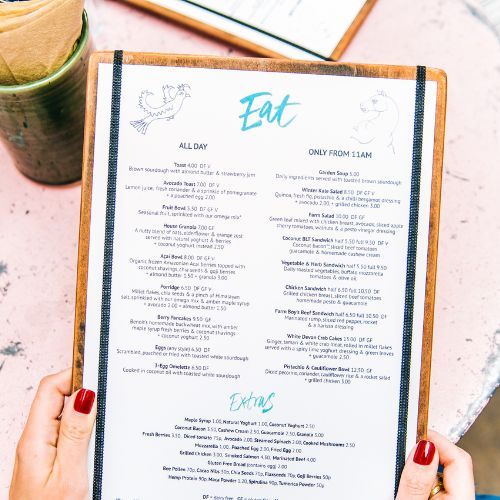 Eat
ALL DAY
Toast 4.00 DF V
Brown sourdough with almond butter & strawberry jam
Avocado Toast 7.00 DF V
Lemon juice, fresh coriander & a sprinkle of pomegranate
+ a poached egg 2.00
Fruit Bowl 5.50 DF GF V
Seasonal fruit, sprinkled with our omega mix*
House Granola 7.00 GF V
A nutty blend of oats, elderflower & orange zest
served with natural yoghurt & berries
+ coconut yoghurt instead 2.50
Açai Bowl 8.00 DF V
Organic frozen Amazonian Açai berries topped with
coconut shavings, chia seeds & goji berries
+ almond butter 1.50 + granola 3.00
Porridge 6.50 DF GF
Millet flakes, chia seeds & a pinch of Himalayan
salt, sprinkled with our omega mix & amber maple syrup
+ avocado 2.00 + almond butter 1.50
Berry Pancakes 9.50 GF
Benoit's homemade buckwheat mix with amber
maple syrup fresh berries & coconut shavings
+ coconut yoghurt 2.50
Eggs (any style) 6.50 DF
Scrambled, poached or fried with toasted sourdough
3-Egg Omelette 6.50 DF
Cooked in coconut oil with toasted white sourdough
ONLY FROM 11AM
Garden Soup 5.00
Daily ingredients served with toasted brown sourdough
Winter Kale Salad 8.50 DF GF V
Quinoa, fresh fig, pistachio, & a chilli bergamot dressing
+ avocado 2.00, + grilled chicken 3.00
Farm Salad 10.00 DF GF
Green leaf mixed with chicken breast, avocado, sliced apple
cherry tomatoes, walnuts & a pesto vinegar dressing
Coconut BLT Sandwich half 5.50 full 9.50 DF V
Coconut bacon, lettuce, sliced beef tomato
guacamole & homemade cashew cream
Vegetable & Herb Sandwich half 5.50 full 9.50
Daily roasted vegetables, buffalo mozzarella
tomatoes & olive oil
Chicken Sandwich half 6.50 full 10.50 DF
Grilled chicken breast, sliced beef tomatoes
homemade pesto & guacamole
Farm Boy's Beef Sandwich half 6.50 full 10.50 DF
Marinated rump, sliced red pepper, rocket
& a harissa dressing
White Devon Crab Cakes 15.00 DF GF
Ginger, tamari & white crab meat, rolled in millet flakes
served with a spicy lime yoghurt dressing & green leaves
+ guacamole 2.50
Pistachio & Cauliflower Bowl 12.50 GF
Diced pecorino, cauliflower rice & a rocket salad
+ grilled chicken 3.00
Extras
Maple Syrup 1.00, Natural Yoghurt 1.00, Coconut Yoghurt 2.50
Coconut Bacon 3.50, Cashew Cream 2.50, Guacamole 2.50, Granola 3.00
Fresh Berries 3.50, Diced tomato 75p, Avocado 2.00, Steamed Spinach 2.00, Cooked Mushrooms 2.50
Mozzarella 1.00, Poached Egg 2.00, Fried Egg 2.00
Grilled Chicken 3.00, Smoked Salmon 4.50, Marinated Beef 4.00
Gluten Free Bread (contains egg) 2.00
Bee Pollen 75p, Cacao Nibs 50p, Chia Seeds 75p, Flaxseeds 75p, Goji Berries 50p
Hemp Protein 90p, Maca Powder 1.20, Spirulina 90p, Turmeric Powder 50p